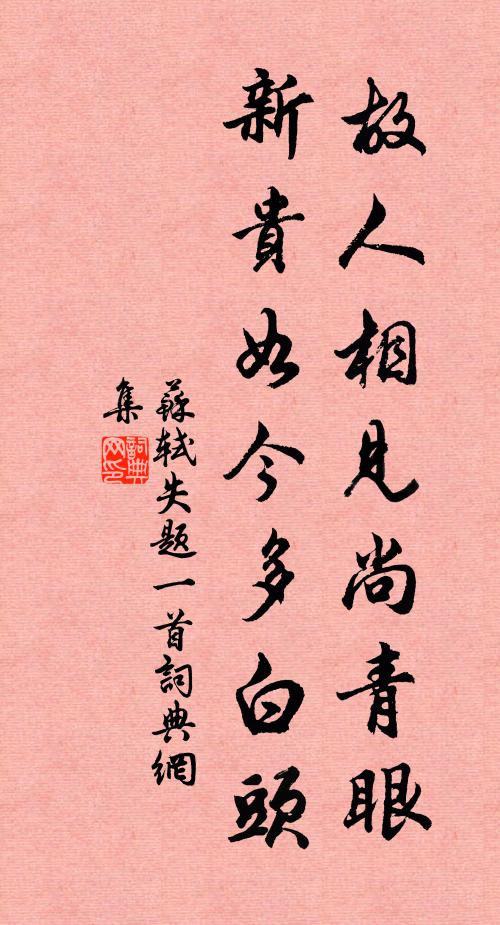 故人相見尚青眼
新貴如今多白頭
蘇軾失題一首詞典網
集
詞典
网印